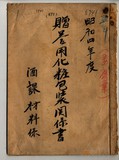 昭和四年度
贈呈用化粧包装関係書
酒課材料係